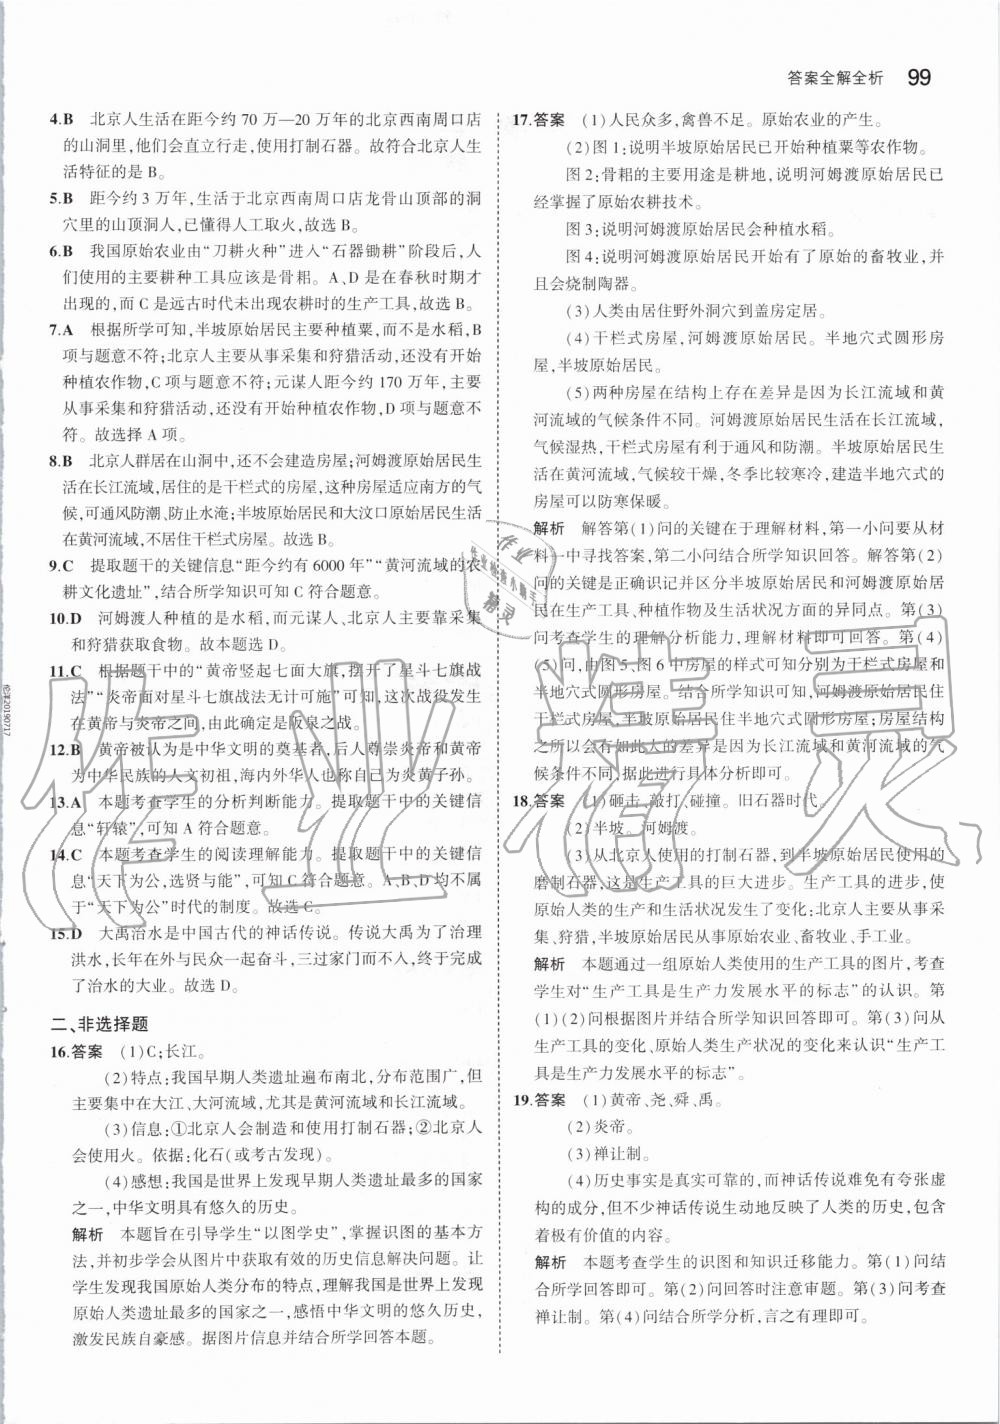 答案全解全析 99
4.B 北京人生活在距今约 70 万—20 万年的北京西南周口店
的山洞里,他们会直立行走,使用打制石器。故符合北京人生
活特征的是 B。
5.B 距今约 3 万年,生活于北京西南周口店龙骨山顶部的洞
穴里的山顶洞人,已懂得人工取火,故选 B。
6.B 我国原始农业由“刀耕火种”进入“石器锄耕”阶段后,人
们使用的主要耕种工具应该是骨耜。A、D 是在春秋时期才
出现的,而 C 是远古时代未出现农耕时的生产工具,故选 B。
7.A 根据所学可知,半坡原始居民主要种植粟,而不是水稻,B
项与题意不符;北京人主要从事采集和狩猎活动,还没有开始
种植农作物,C 项与题意不符;元谋人距今约 170 万年,主要
从事采集和狩猎活动,还没有开始种植农作物,D 项与题意不
符。故选择 A 项。
8.B 北京人群居在山洞中,还不会建造房屋;河姆渡原始居民生
活在长江流域,居住的是干栏式的房屋,这种房屋适应南方的气
候,可用于防潮、防止水淹;半坡原始居民和大汶口原始居民生活
在黄河流域,不居住干栏式房屋。故选 B。
9.C 提取题干的关键信息“距今约有 6000 年”“黄河流域的农
耕文化遗址”,结合所学知识可知 C 符合题意。
10.D 河姆渡人种植的是水稻,而元谋人、北京人主要靠采集
和狩猎获取食物。故本题选 D。
11.C 根据题干中的“黄帝竖起七面大旗,摆开了星斗七旗战
法”“炎帝面对星斗七旗战法无计可施”可知,这次战役发生
在黄帝与炎帝之间,由此确定是阪泉之战。
12.B 黄帝被认为是中华文明的奠基者,后人尊崇炎帝和黄帝
为中华民族的人文初祖,海内外华人也称自己为炎黄子孙。
13.A 本题考查学生的分析判断能力。提取题干中的关键信
息“轩辕”,可知 A 符合题意。
14.C 本题考查学生的阅读理解能力。提取题干中的关键信
息“天下为公,选贤与能”,可知 C 符合题意。A、B、D 均不属
于“天下为公”时代的制度。故选 C。
15.D 大禹治水是中国古代的神话传说。传说大禹为了治理
洪水,长年在外与民众一起奋斗,三过家门而不入,终于完成
了治水的大业。故选 D。
二、非选择题
16.答案 (1)C;长江。
(2)特点:我国早期人类遗址遍布南北,分布范围广,但
主要集中在大江、大河流域,尤其是黄河流域和长江流域。
(3)信息:①北京人会制造和使用打制石器;②北京人
会使用火。依据:化石(或考古发现)。
(4)感想:我国是世界上发现早期人类遗址最多的国家
之一,中华文明具有悠久的历史。
解析 本题旨在引导学生“以图学史”,掌握识图的基本方
法,并初步学会从图片中获取有效的历史信息解决问题。让
学生发现我国原始人类分布的特点,理解我国是世界上发现
原始人类遗址最多的国家之一,感悟中华文明的悠久历史,
激发民族自豪感。据图片信息并结合所学回答本题。
17.答案 (1)人民众多,禽兽不足。原始农业的产生。
(2)图 1:说明半坡原始居民已开始种植粟等农作物。
图 2:骨耜的主要用途是耕地,说明河姆渡原始居民已
经掌握了原始农耕技术。
图 3:说明河姆渡原始居民会种植水稻。
图 4:说明河姆渡原始居民开始有了原始的畜牧业,并
且会烧制陶器。
(3)人类由居住野外洞穴到盖房定居。
(4)干栏式房屋,河姆渡原始居民。半地穴式圆形房
屋,半坡原始居民。
(5)两种房屋在结构上存在差异是因为长江流域和黄
河流域的气候条件不同。河姆渡原始居民生活在长江流域,
气候湿热,干栏式房屋有利于通风和防潮。半坡原始居民生
活在黄河流域,气候较干燥,冬季比较寒冷,建造半地穴式的
房屋可以防寒保暖。
解析 解答第(1)问的关键在于理解材料,第一小问要从材
料一中寻找答案,第二小问结合所学知识回答。解答第(2)
问的关键是正确识记并区分半坡原始居民和河姆渡原始居民
在生产工具、种植作物及生活状况方面的异同点。第(3)
问考查学生的理解分析能力,理解材料即可回答。第(4)
(5)问,由图 5、图 6 中房屋的样式可知分别为干栏式房屋和
半地穴式圆形房屋。结合所学知识可知,河姆渡原始居民住
干栏式房屋,半坡原始居民住半地穴式圆形房屋;房屋结构
之所以会有如此大的差异是因为长江流域和黄河流域的气
候条件不同,据此进行具体分析即可。
18.答案 (1)砸击、敲打、碰撞。旧石器时代。
(2)半坡。河姆渡。
(3)从北京人使用的打制石器,到半坡原始居民使用的
磨制石器,这是生产工具的巨大进步。生产工具的进步,使
原始人类的生产和生活状况发生了变化:北京人主要从事采
集、狩猎,半坡原始居民从事原始农业、畜牧业、手工业。
解析 本题通过一组原始人类使用的生产工具的图片,考查
学生对“生产工具是生产力发展水平的标志”的认识。第
(1)(2)问根据图片并结合所学知识回答即可。第(3)问从
生产工具的变化、原始人类生产状况的变化来认识“生产工
具是生产力发展水平的标志”。
19.答案 (1)黄帝、尧、舜、禹。
(2)炎帝。
(3)禅让制。
(4)历史事实是真实可靠的,而神话传说难免有夸张虚
构的成分,但不少神话传说生动地反映了人类的历史,具有
极有价值的内容。
解析 本题考查学生的识图和知识迁移能力。第(1)问结
合所学回答即可。第(2)问回答时注意审题。第(3)问考查
禅让制。第(4)问结合所学分析,言之有理即可。
作业精灵